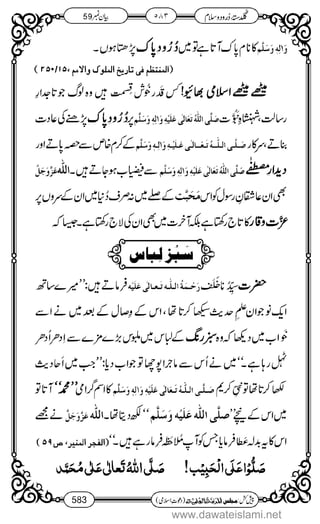 بیان نمبر59 ۵۸۳ گلدستہ دُرود و سلام
وَاٰلِہٖ وَسَلَّم کا نامِ پاک آتا ہے تو میں دُرُودِ پاک پڑھتا ہوں۔
(المنتظم فی تاریخ الملوک والامم ۱۵/ ۲۵۰)
میٹھے میٹھے اسلامی بھائیو! کس قَدَر خُوش قسمت ہیں وہ لوگ جو تاجدارِ
رِسالت، شہنشاہِ نَبُوَّت صَلَّی اللہُ تَعَالٰی عَلَیْہِ وَاٰلِہٖ وَسَلَّم پر دُرُودِ پاک پڑھنے کی عادت
بناتے، سرکار صَلَّی اللہُ تَعَالٰی عَلَیْہِ وَاٰلِہٖ وَسَلَّم کے کرمِ خاص سے حصہ پاتے اور
دیدارِ مصطفٰے صَلَّی اللہُ تَعَالٰی عَلَیْہِ وَاٰلِہٖ وَسَلَّم سے فیضیاب ہوجاتے ہیں۔ اللہ عَزَّوَجَلَّ
بھی ان عاشقانِ رسول کو اس مَحَبَّت کے صلے میں نہ صرف دُنیا میں ان کے سروں پر
عزّت و وقار کا تاج رکھتا ہے بلکہ آخرت میں بھی ان کی لاج رکھتا ہے۔ جیسا کہ
سَبْز لباس
حضرت سَیِّدُنا خَلَف رَحْمَۃُ اللہِ تَعَالٰی عَلَیْہ فرماتے ہیں: ”میرے ساتھ
ایک نوجوان علمِ حدیث سیکھا کرتا تھا، اس کے وِصال کے بعد میں نے اسے
خواب میں دیکھا کہ وہ سبز رنگ کے لباس میں ملبوس بڑے مزے سے اِدھر اُدھر
ٹہل رہا ہے۔“ میں نے اُس سے ماجرا پوچھا تو جواب دیا: ”جب میں اَحادیث
لکھا کرتا تھا تو نبیِّ کریم صَلَّی اللہُ تَعَالٰی عَلَیْہِ وَاٰلِہٖ وَسَلَّم کا اسمِ گرامی ”محمد“ آتا تو
میں اس کے نیچے ”صلَّی اللہ علیہ وَسَلَّم“ لکھ دیتا تھا۔ اللہ عَزَّوَجَلَّ نے مجھے
اس کا یہ بدلہ عطا فرمایا جو آپ مُلاحَظہ فرما رہے ہیں۔“ (الفجر المنیر، ص۵۹)
صَلُّوْا عَلَی الْحَبِیْب! صَلَّی اللہُ تَعَالٰی عَلٰی مُحَمَّد
583
www.dawateislami.net